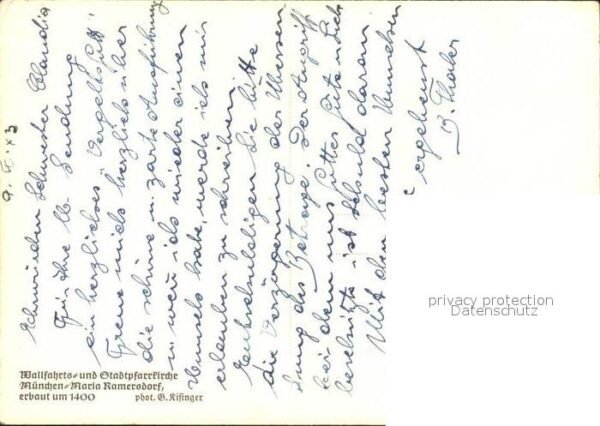 9. V. 43
Ehrwürden Schwester Claudia
Für Ihre lb. Sendung
ein herzliches Vergelts Gott
Freue mich herzlich über
die schöne u. zarte Ausführung
u. wenn ich wieder einen
Wunsch habe, werde ich mir
erlauben zu schreiben.
Entschuldigen Sie bitte
die Verzögerung der Übersen
dung des Betrags. Der Angriff
bei dem uns Gottes Güte
beschützte ist schuld daran.
Mit den besten Wünschen
ergebenst
B. Thaler
Wallfahrts- und Stadtpfarrkirche
München-Maria Ramersdorf,
erbaut um 1400 phot. G. Kisinger
privacy protection
Datenschutz